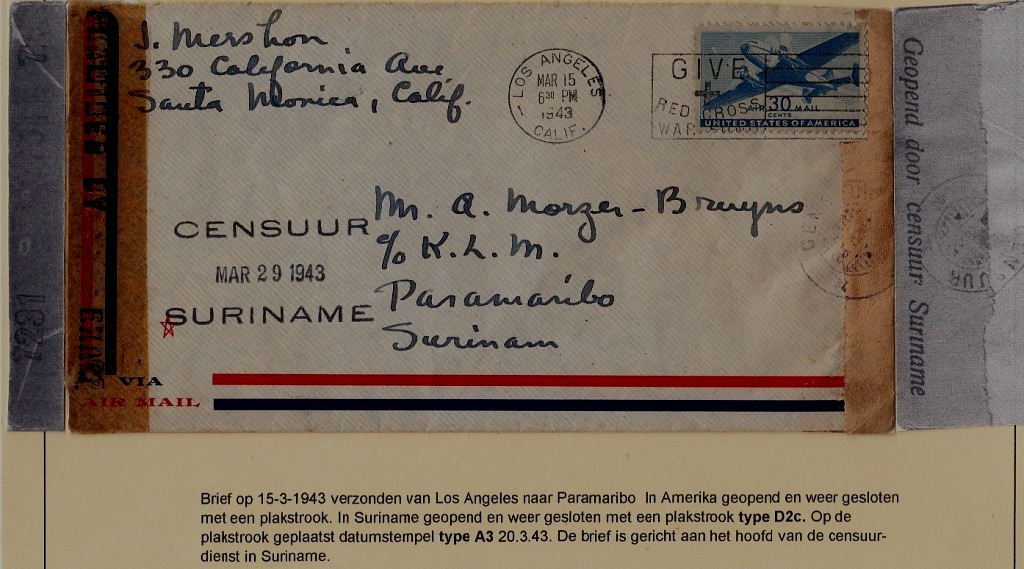 J. Mershon
330 California Ave.
Santa Monica, Calif.
LOS ANGELES
MAR 15
6 30 PM
1943
CALIF.
GIVE
RED CROSS
WAR
AIR 30 MAIL
CENTS
UNITED STATES OF AMERICA
Mr. A. Morzer-Bruyns
c/o K.L.M.
Paramaribo
Surinam
CENSUUR
MAR 29 1943
SURINAME
VIA
AIR MAIL
Geopend door censuur Suriname
Brief op 15-3-1943 verzonden van Los Angeles naar Paramaribo In Amerika geopend en weer gesloten
met een plakstrook. In Suriname geopend en weer gesloten met een plakstrook type D2c. Op de
plakstrook geplaatst datumstempel type A3 20.3.43. De brief is gericht aan het hoofd van de censuur-
dienst in Suriname.